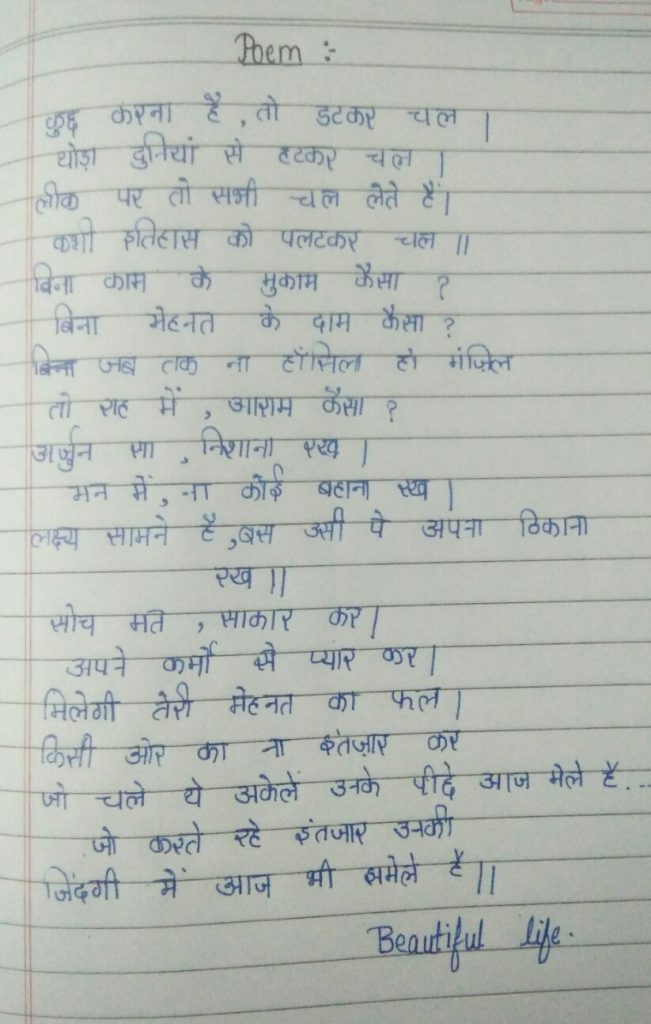 Poem :-
कुछ करना है, तो डटकर चल |
थोड़ा दुनियां से हटकर चल |
लीक पर तो सभी चल लेते हैं।
कभी इतिहास को पलटकर चल ||
बिना काम के मुकाम कैसा ?
बिना मेहनत के दाम कैसा ?
जब तक ना हाँसिल हो मंज़िल
तो राह में, आराम कैसा ?
अर्जुन सा, निशाना रख |
मन में, ना कोई बहाना रख |
लक्ष्य सामने है, बस उसी पे अपना ठिकाना
रख ||
सोच मत, साकार कर |
अपने कर्मों से प्यार कर |
मिलेगी तेरी मेहनत का फल |
किसी ओर का ना इंतज़ार कर
जो चले थे अकेलें उनके पीछे आज मेले है...
जो करते रहे इंतजार उनकी
जिंदगी में आज भी झमेले है ||
Beautiful life.